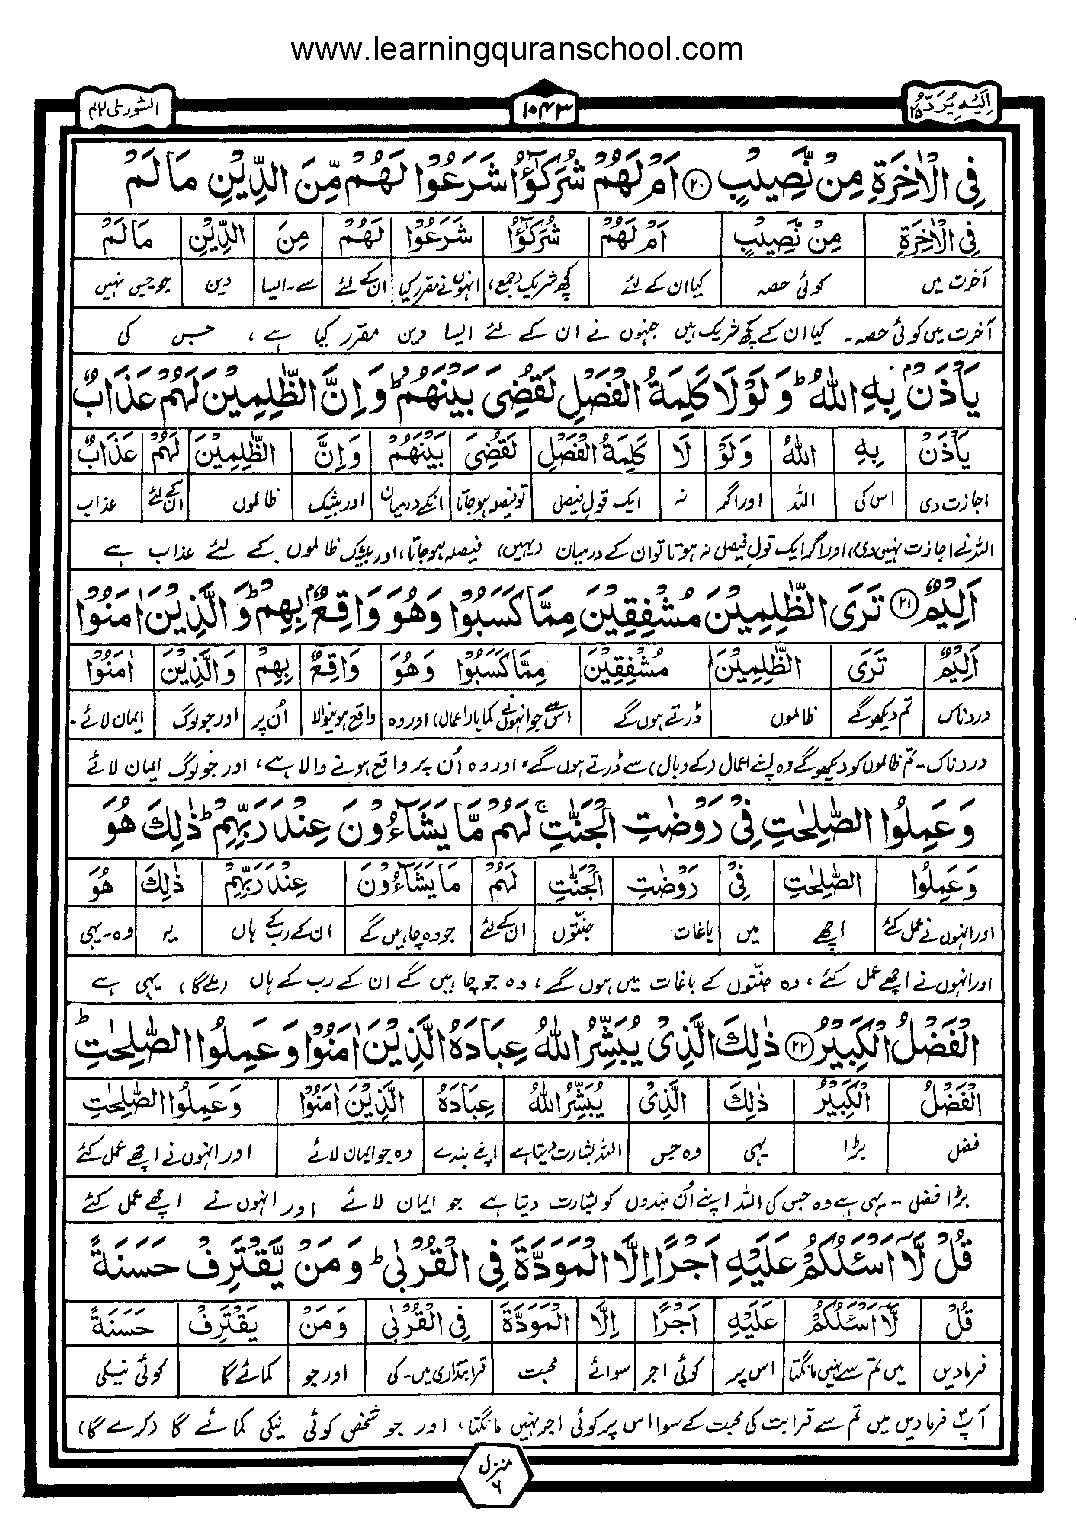 www.learningquranschool.com
اليه يرد ٢٥
١٠٤٣
الشورٰى ٤٢
فِى الْاٰخِرَةِ مِنْ نَّصِيْبٍ ۲۰ اَمْ لَهُمْ شُرَكٰٓؤُا شَرَعُوْا لَهُمْ مِّنَ الدِّيْنِ مَا لَمْ
فِى الْاٰخِرَةِ مِنْ نَّصِيْبٍ اَمْ لَهُمْ شُرَكٰٓؤُا شَرَعُوْا لَهُمْ مِنَ الدِّيْنِ مَا لَمْ
آخرت میں کوئی حصہ کیا ان کے لئے کچھ شریک (جمع) انہوں نے مقرر کیا ان کے لئے سے۔ایسا دین جو جس نہیں
آخرت میں کوئی حصہ ۔ کیا ان کے کچھ شریک ہیں جنہوں نے ان کے لئے ایسا دین مقرر کیا ہے ، جس کی
يَاْذَنْۢ بِهِ اللّٰهُ ؕ وَلَوْلَا كَلِمَةُ الْفَصْلِ لَقُضِىَ بَيْنَهُمْ ؕ وَاِنَّ الظّٰلِمِيْنَ لَهُمْ عَذَابٌ
يَاْذَنْ بِهِ اللّٰهُ وَلَوْ لَا كَلِمَةُ الْفَصْلِ لَقُضِىَ بَيْنَهُمْ وَاِنَّ الظّٰلِمِيْنَ لَهُمْ عَذَابٌ
اجازت دی اس کی اللہ اور اگر نہ ایک قول فیصل تو فیصلہ ہو جاتا انکے درمیان اور بیشک ظالموں ان کے لئے عذاب
اللہ نے اجازت نہیں دی، اور اگر ایک قول فیصل نہ ہوتا تو ان کے درمیان (یہیں) فیصلہ ہو جاتا، اور بیشک ظالموں کے لئے عذاب ہے
اَلِيْمٌ ۲۱ تَرَى الظّٰلِمِيْنَ مُشْفِقِيْنَ مِمَّا كَسَبُوْا وَهُوَ وَاقِعٌۢ بِهِمْ ؕ وَالَّذِيْنَ اٰمَنُوْا
اَلِيْمٌ تَرَى الظّٰلِمِيْنَ مُشْفِقِيْنَ مِمَّا كَسَبُوْا وَهُوَ وَاقِعٌ بِهِمْ وَالَّذِيْنَ اٰمَنُوْا
دردناک تم دیکھو گے ظالموں ڈرتے ہوں گے اس سے جو انہوں نے کمایا (اعمال) اور وہ واقع ہونیوالا اُن پر اور جو لوگ ایمان لائے۔
دردناک۔ تم ظالموں کو دیکھو گے وہ اپنے اعمال (کے وبال) سے ڈرتے ہوں گے، اور وہ اُن پر واقع ہونے والا ہے، اور جو لوگ ایمان لائے
وَعَمِلُوا الصّٰلِحٰتِ فِىْ رَوْضٰتِ الْجَنّٰتِ ۚ لَهُمْ مَّا يَشَآءُوْنَ عِنْدَ رَبِّهِمْ ؕ ذٰلِكَ هُوَ
وَعَمِلُوا الصّٰلِحٰتِ فِىْ رَوْضٰتِ الْجَنّٰتِ لَهُمْ مَا يَشَآءُوْنَ عِنْدَ رَبِّهِمْ ذٰلِكَ هُوَ
اور انہوں نے عمل کئے اچھے میں باغات جنّتوں ان کے لئے جو وہ چاہیں گے ان کے رب کے ہاں یہ وہ۔یہی
اور انہوں نے اچھے عمل کئے ، وہ جنّتوں کے باغات میں ہوں گے ، وہ جو چاہیں گے ان کے رب کے ہاں (ملے گا) یہی ہے
الْفَضْلُ الْكَبِيْرُ ۲۲ ذٰلِكَ الَّذِىْ يُبَشِّرُ اللّٰهُ عِبَادَهُ الَّذِيْنَ اٰمَنُوْا وَعَمِلُوا الصّٰلِحٰتِ ؕ
الْفَضْلُ الْكَبِيْرُ ذٰلِكَ الَّذِىْ يُبَشِّرُ اللّٰهُ عِبَادَهُ الَّذِيْنَ اٰمَنُوْا وَعَمِلُوا الصّٰلِحٰتِ
فضل بڑا یہی وہ جس اللہ بشارت دیتا ہے اپنے بندے وہ جو ایمان لائے اور انہوں نے اچھے عمل کئے
بڑا فضل ۔ یہی ہے وہ جس کی اللہ اپنے اُن بندوں کو بشارت دیتا ہے جو ایمان لائے اور انہوں نے اچھے عمل کئے
قُلْ لَّاۤ اَسْئَلُكُمْ عَلَيْهِ اَجْرًا اِلَّا الْمَوَدَّةَ فِى الْقُرْبٰى ؕ وَمَنْ يَّقْتَرِفْ حَسَنَةً
قُلْ لَّاۤ اَسْئَلُكُمْ عَلَيْهِ اَجْرًا اِلَّا الْمَوَدَّةَ فِى الْقُرْبٰى وَمَنْ يَقْتَرِفْ حَسَنَةً
فرمادیں میں تم سے نہیں مانگتا اس پر کوئی اجر سوائے محبت قرابتداری میں۔کی اور جو کمائے گا کوئی نیکی
آپؐ فرمادیں میں تم سے قرابت کی محبت کے سوا اس پر کوئی اجر نہیں مانگتا، اور جو شخص کوئی نیکی کمائے گا (کرے گا)
منزل ٦